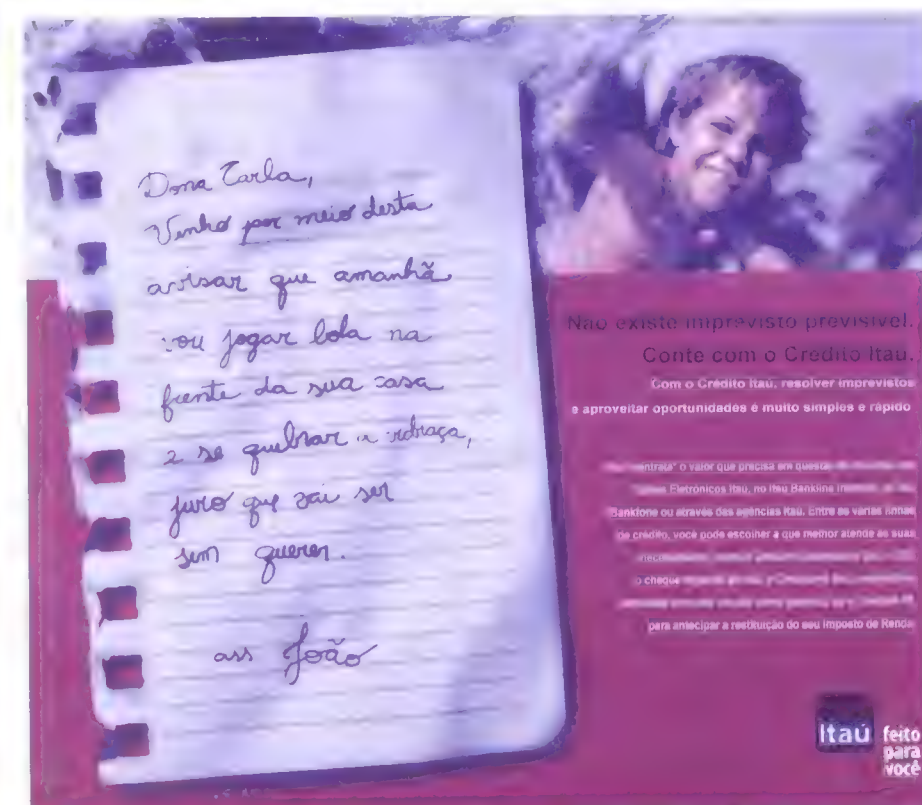 Dona Carla,
Venho por meio desta
avisar que amanhã
vou jogar bola na
frente da sua casa
e se quebrar a vidraça,
juro que vai ser
sem querer.
ass João
Não existe imprevisto previsível.
Conte com o Crédito Itaú.
Com o Crédito Itaú, resolver imprevistos
e aproveitar oportunidades é muito simples e rápido
o valor que precisa em
Eletrônicos Itaú, no Itaú Bankline
Bankfone ou através das agências Itaú. Entre as várias linhas
de crédito, você pode escolher a que melhor atende as suas
o cheque
para antecipar a restituição do seu Imposto de Renda
Itaú
feito
para
você